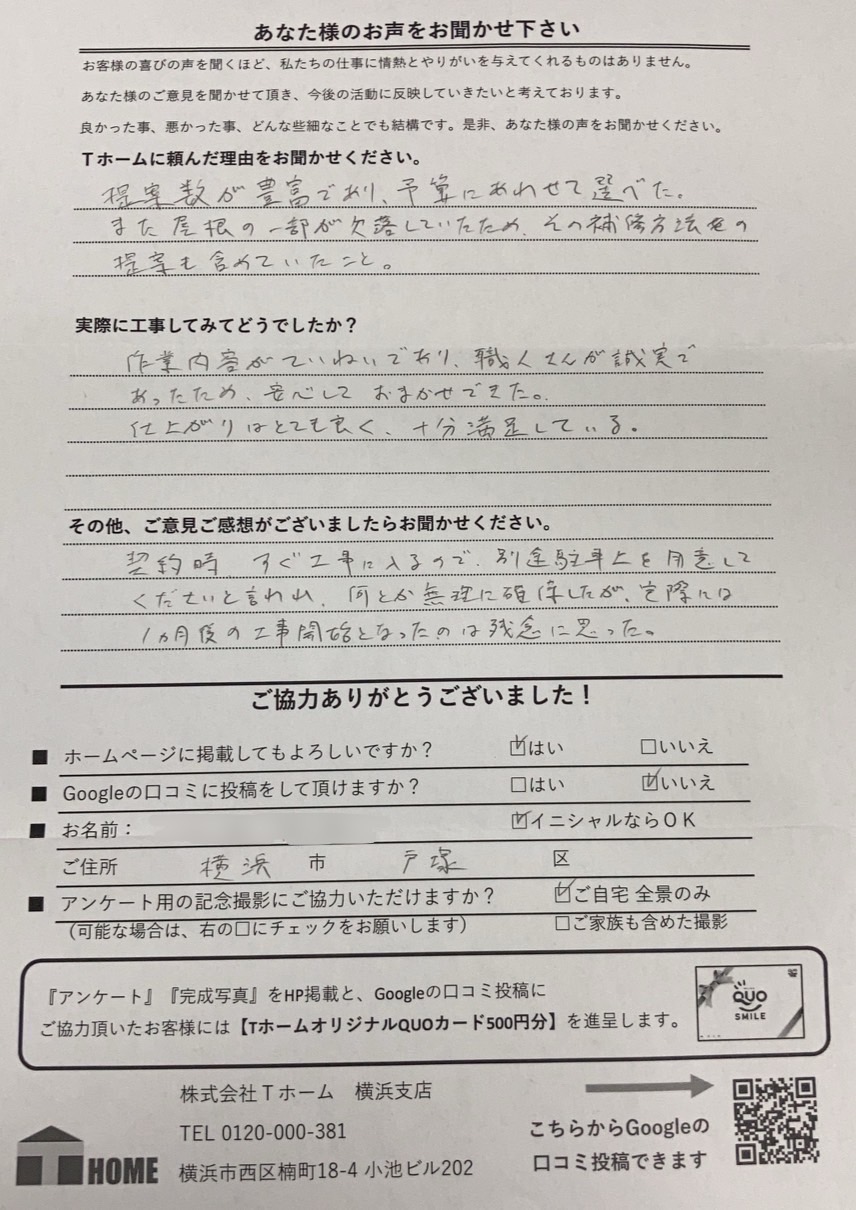 あなた様のお声をお聞かせ下さい
お客様の喜びの声を聞くほど、私たちの仕事に情熱とやりがいを与えてくれるものはありません。
あなた様のご意見を聞かせて頂き、今後の活動に反映していきたいと考えております。
良かった事、悪かった事、どんな些細なことでも結構です。是非、あなた様の声をお聞かせください。
Tホームに頼んだ理由をお聞かせください。
提案数が豊富であり、予算にあわせて選べた。
また屋根の一部が欠落していたため、その補修方法をの
提案も含めていたこと。
実際に工事してみてどうでしたか？
作業内容がていねいであり、職人さんが誠実で
あったため、安心して おまかせできた。
仕上がりはとても良く、十分満足している。
その他、ご意見ご感想がございましたらお聞かせください。
契約時 すぐ工事に入るので、別途駐車上を用意して
くださいと言われ、何とか無理に確保したが、実際には
1ヵ月後の工事開始となったのは残念に思った。
ご協力ありがとうございました！
■ ホームページに掲載してもよろしいですか？ ☑はい □いいえ
■ Googleの口コミに投稿をして頂けますか？ □はい ☑いいえ
■ お名前： ☑イニシャルならOK
ご住所 横浜 市 戸塚 区
■ アンケート用の記念撮影にご協力いただけますか？ ☑ご自宅 全景のみ
（可能な場合は、右の□にチェックをお願いします） □ご家族も含めた撮影
『アンケート』『完成写真』をHP掲載と、Googleの口コミ投稿に
ご協力頂いたお客様には【TホームオリジナルQUOカード500円分】を進呈します。
QUO
SMILE
株式会社Tホーム 横浜支店
TEL 0120-000-381
横浜市西区楠町18-4 小池ビル202
HOME
こちらからGoogleの
口コミ投稿できます